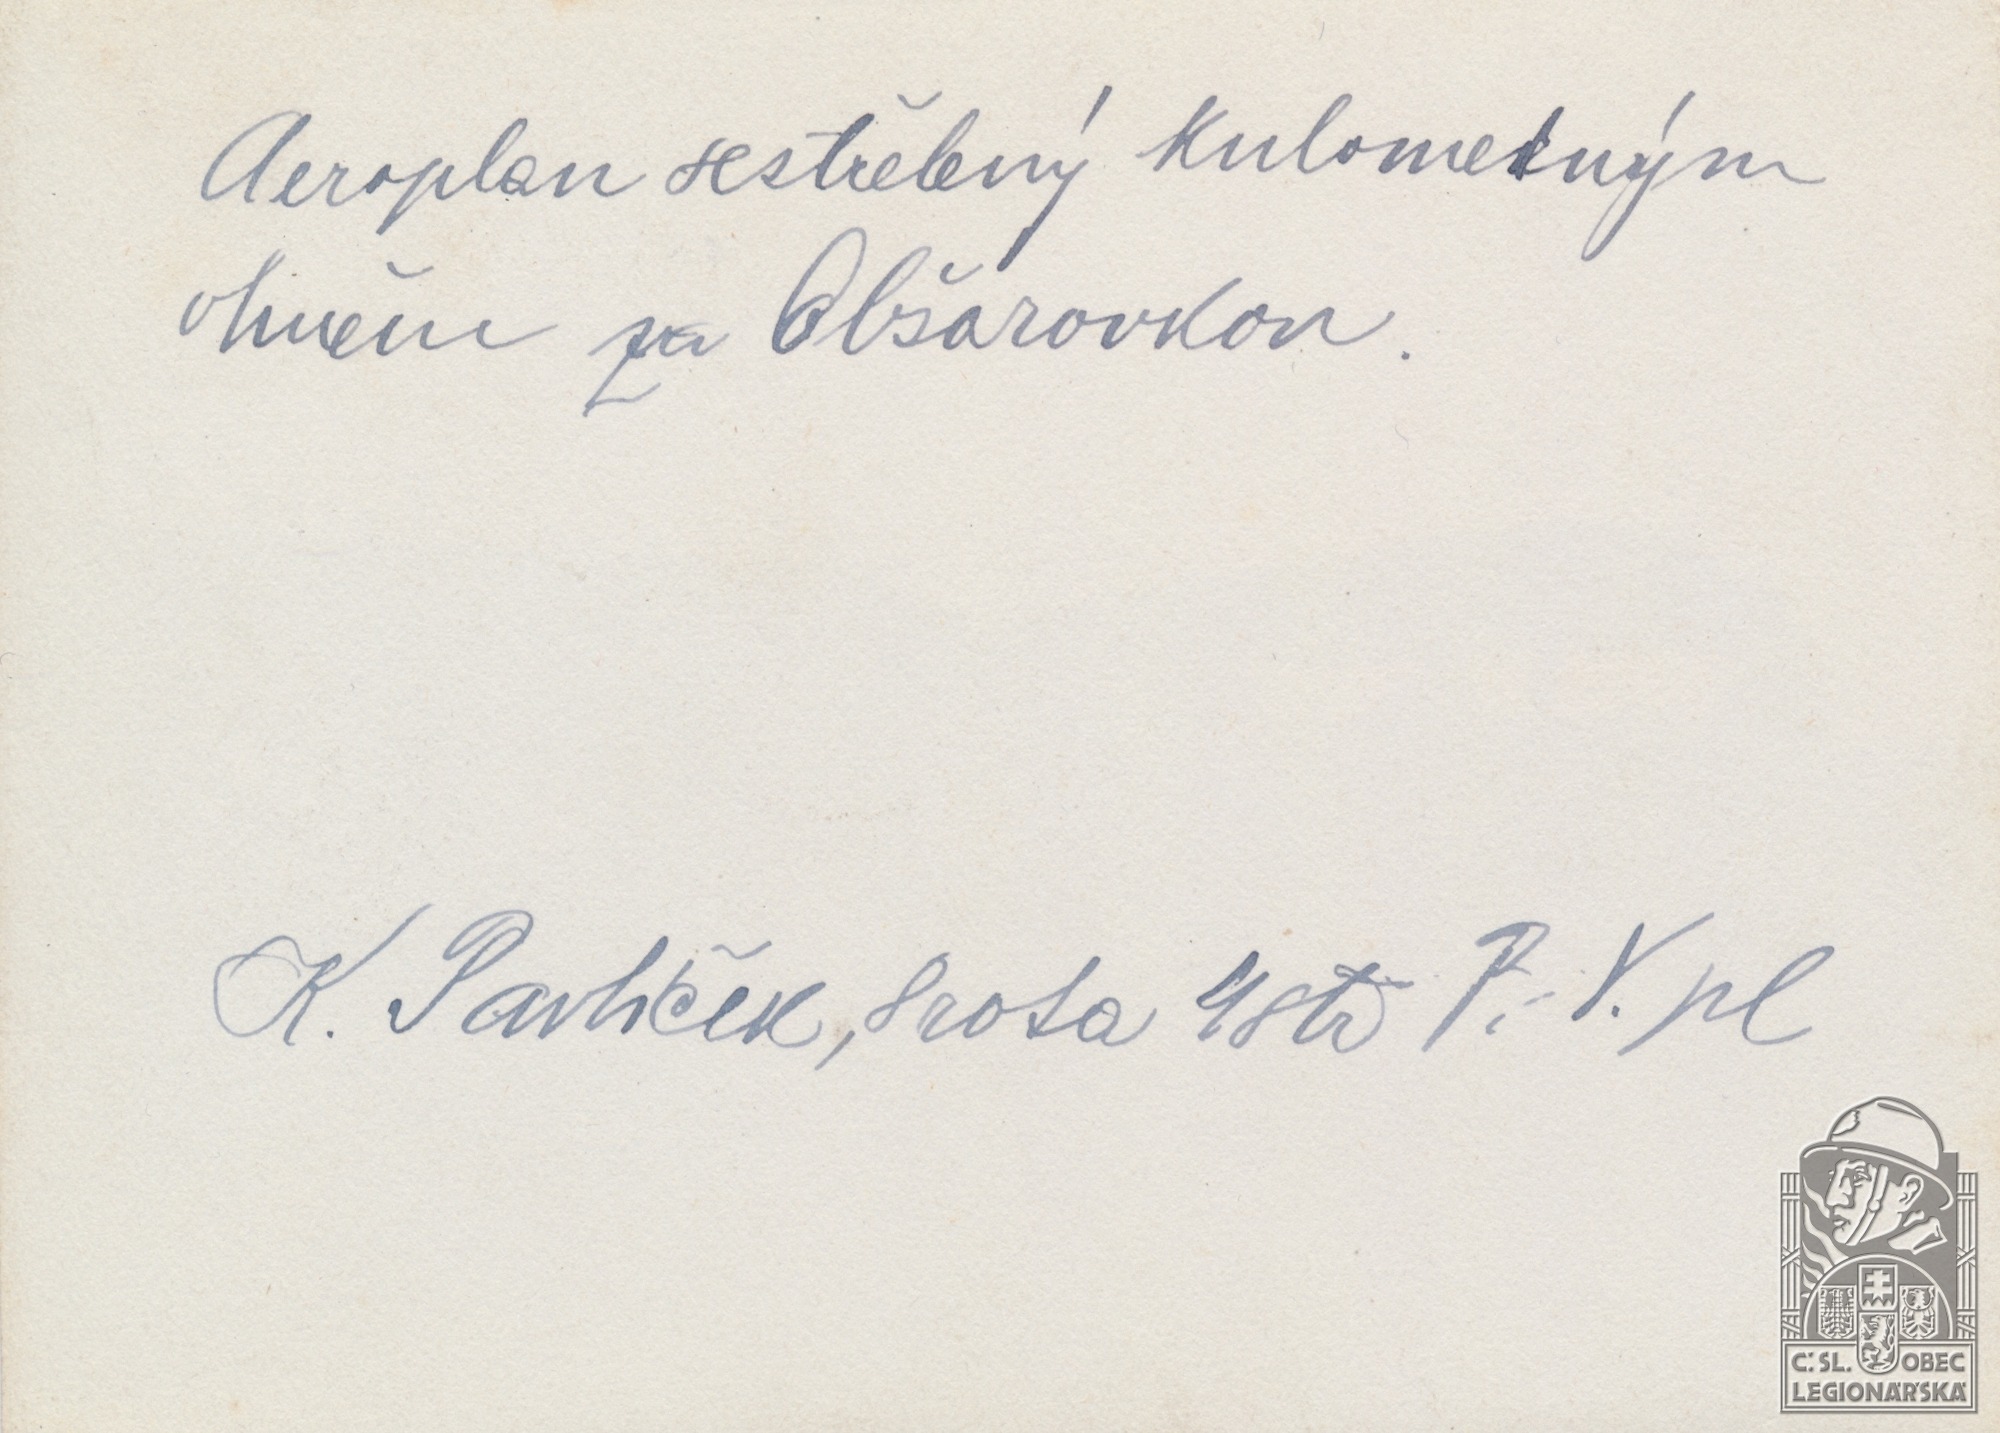 Aeroplan sestřelený kulometným
ohněm za Obšarovkou.
K. Pavlíček, 8 rota 4 stř P. Y. pl
Č.SL. OBEC
LEGIONÁŘSKÁ